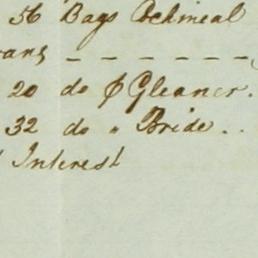 56 Bags Ochineal
20 do ₱ Gleaner.
32 do " Bride..
Interest